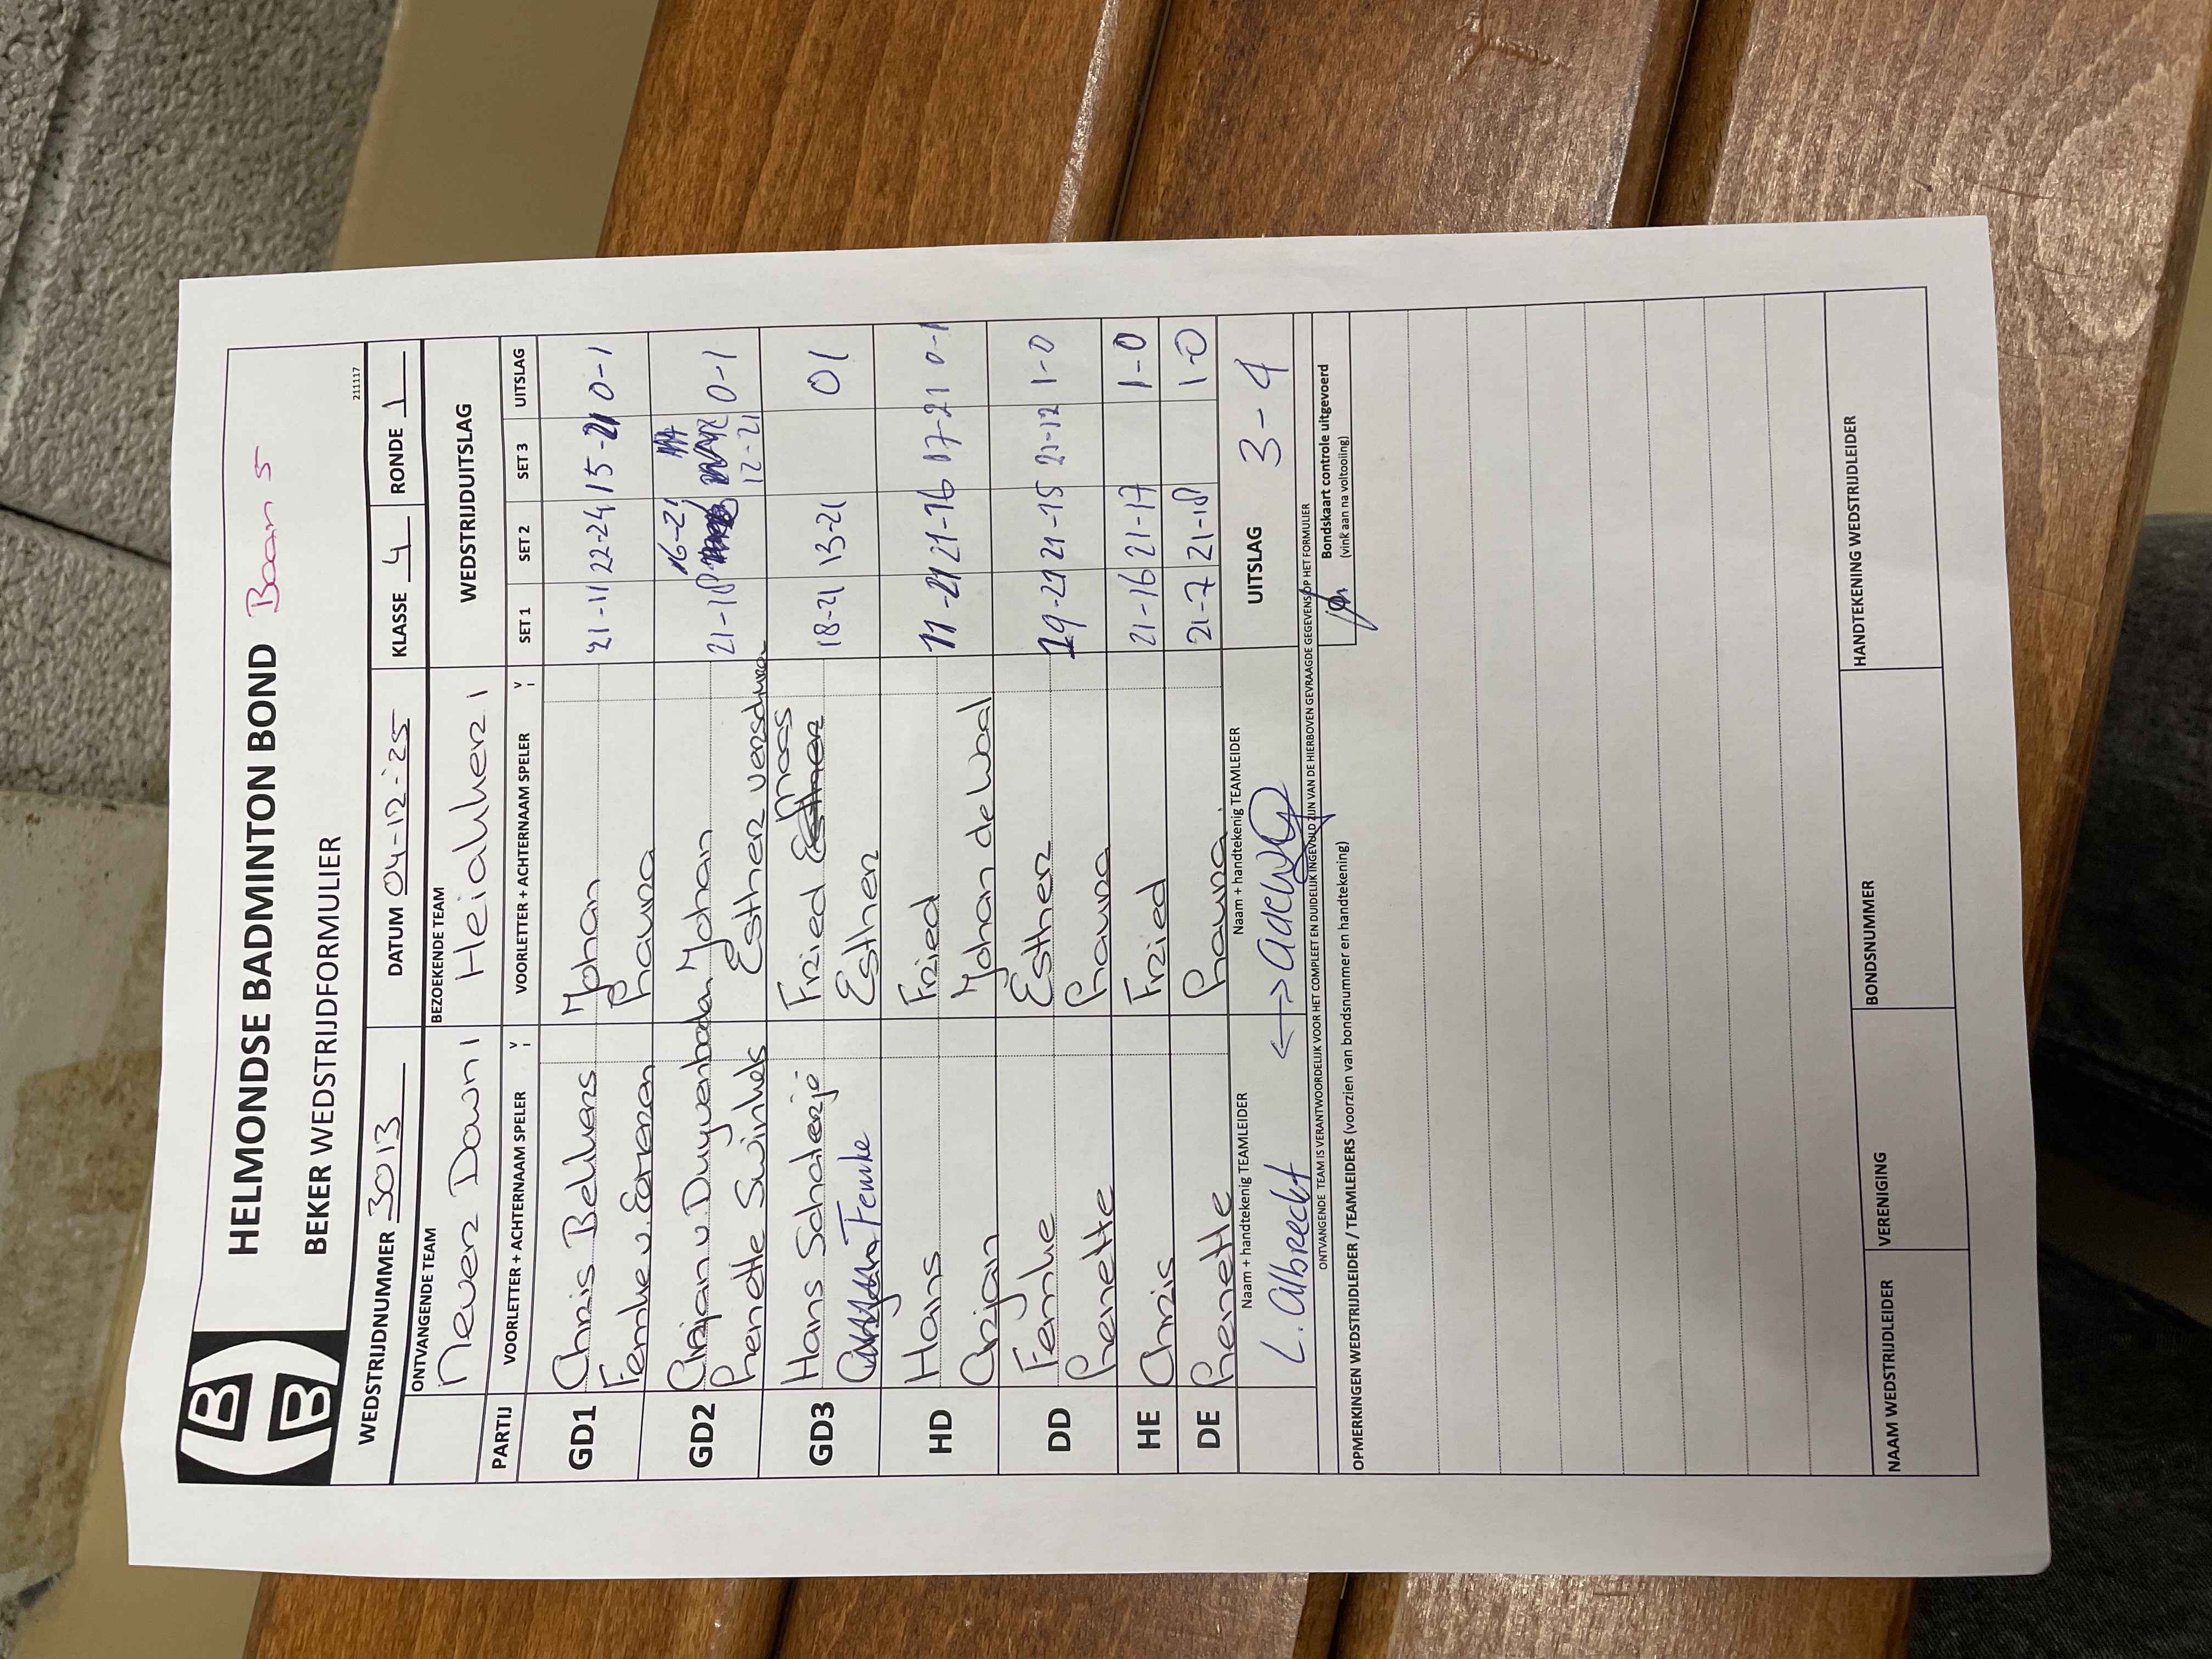 HELMONDSE BADMINTON BOND Baan 5
BEKER WEDSTRIJDFORMULIER
211117
WEDSTRIJDNUMMER 3013 DATUM 04-12-'25 KLASSE 4 RONDE 1
ONTVANGENDE TEAM BEZOEKENDE TEAM WEDSTRIJDUITSLAG
Never Down 1 Heiakker 1
PARTIJ VOORLETTER + ACHTERNAAM SPELER V VOORLETTER + ACHTERNAAM SPELER V SET 1 SET 2 SET 3 UITSLAG
GD1 Chris Bekkers Johan 21-11 22-24 15-21 0-1
Femke v.
GD2 Arjan v Duynhoven Johan 21-18 16-21 12-21 0-1
Esther
GD3 Hans Fried 18-21 13-21 01
Femke Esther
HD Hans Fried 11-21 21-16 07-21 0-1
Arjan Johan de Waal
DD Femke Esther 19-21 21-15 21-12 1-0
HE Chris Fried 21-16 21-17 1-0
DE 21-7 21-18 1-0
Naam + handtekenig TEAMLEIDER Naam + handtekenig TEAMLEIDER
L. Albrecht <-> UITSLAG 3-4
ONTVANGENDE TEAM IS VERANTWOORDELIJK VOOR HET COMPLEET EN DUIDELIJK INGEVULD ZIJN VAN DE HIERBOVEN GEVRAAGDE GEGEVENS OP HET FORMULIER
Bondskaart controle uitgevoerd
(vink aan na voltooiing)
OPMERKINGEN WEDSTRIJDLEIDER / TEAMLEIDERS (voorzien van bondsnummer en handtekening)
NAAM WEDSTRIJDLEIDER VERENIGING BONDSNUMMER HANDTEKENING WEDSTRIJDLEIDER